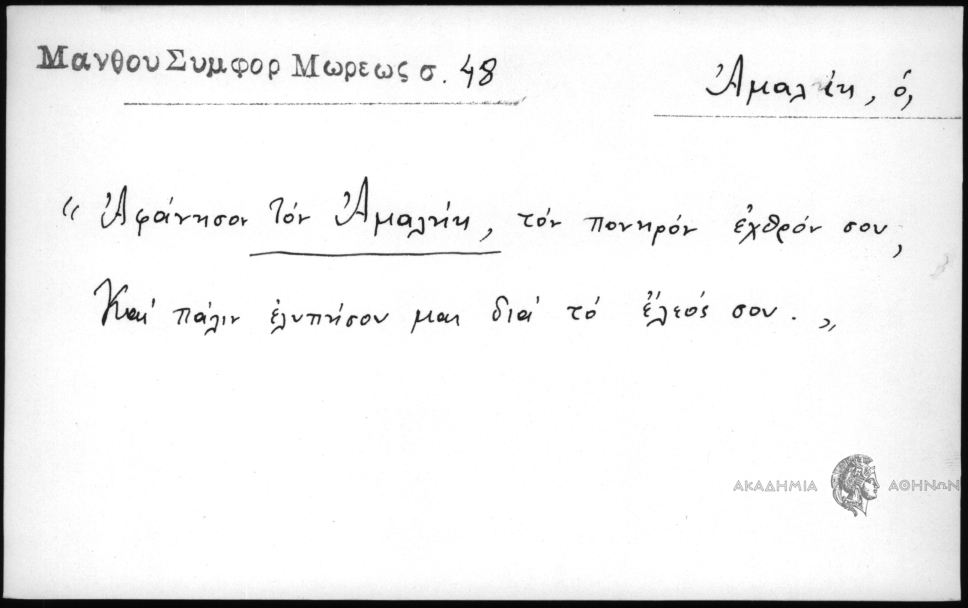 Μανθου Συμφορ Μωρεως σ. 48
Ἀμαλήκ, ὁ,
“ Ἀφάνησον τὸν Ἀμαλήκ, τὸν πονηρὸν ἐχθρόν σου,
Καὶ πάλιν ἐλυπήσου μας διὰ τὸ ἔλεός σου. „
ΑΚΑΔΗΜΙΑ ΑΘΗΝΩΝ